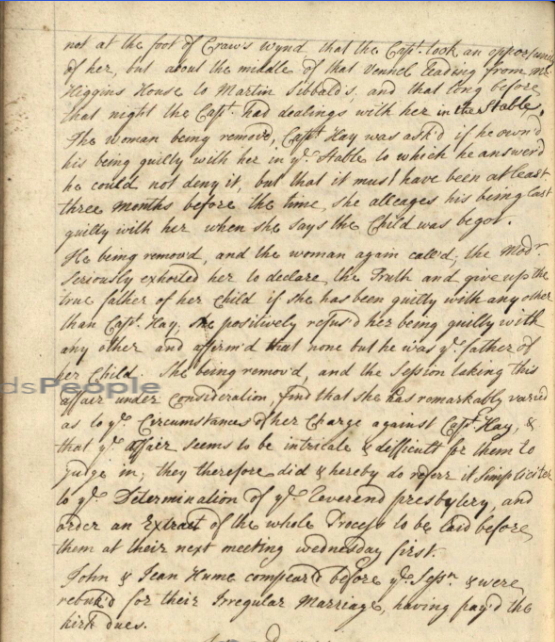 not at the foot of Craw's Wynd that the Capt. took an opportunity
of her, but about the middle of that Vennel leading from Mr.
Higgins House to Martin Sibbald's, and that long before
that night the Capt. had dealings with her in the Stable.
The woman being remov'd, Capt. Hay was ask'd if he own'd
his being guilty with her in ye. Stable to which he answer'd
he could not deny it, but that it must have been at least
three months before the time, she alleages his being last
guilty with her when she says the Child was begot.
He being remov'd, and the woman again call'd, the Modr.
Seriously exhorted her to declare the Truth and give up the
true father of her Child if she has been guilty with any other
than Capt. Hay, she positively refus'd her being guilty with
any other and affirm'd that none but he was ye. father of
her Child. She being remov'd, and the Session taking this
dsPeople
affair under consideration, find that she has remarkably varied
as to ye. Circumstances of her Charge against Capt. Hay, &
that ye. affair seems to be intricate & difficult for them to
Judge in; they therefore did & hereby do referr it Simpliciter
to ye. Determination of ye. Reverend presbytery, and
order an Extract of the whole Process to be laid before
them at their next meeting wednesday first.
John & Jean Hume compear'd before ye. Sessn. & were
rebuk'd for their Irregular Marriage, having pay'd the
kirk dues.